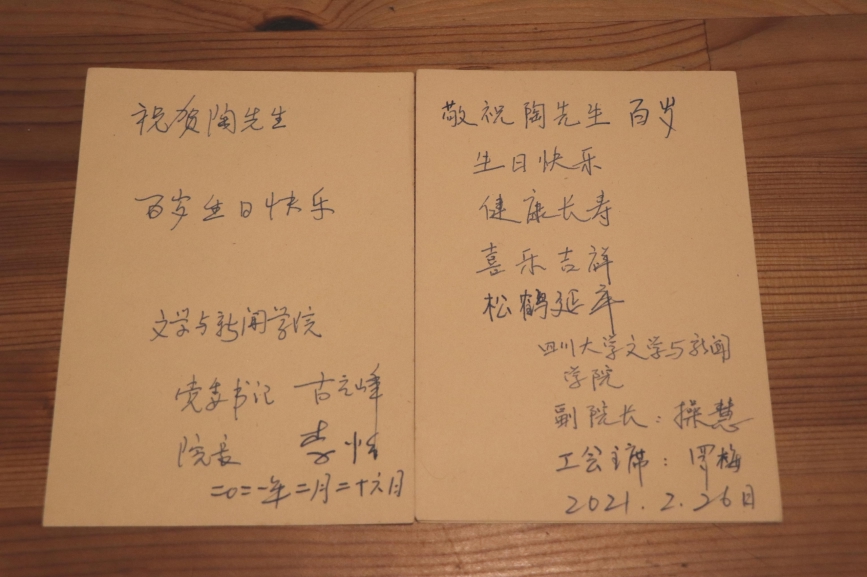 祝贺陶先生
百岁生日快乐
文学与新闻学院
党委书记 古立峰
院长 李怡
二〇二一年二月二十六日
敬祝陶先生 百岁
生日快乐
健康长寿
喜乐吉祥
松鹤延年
四川大学文学与新闻
学院
副院长:操慧
工会主席:罗梅
2021.2.26日